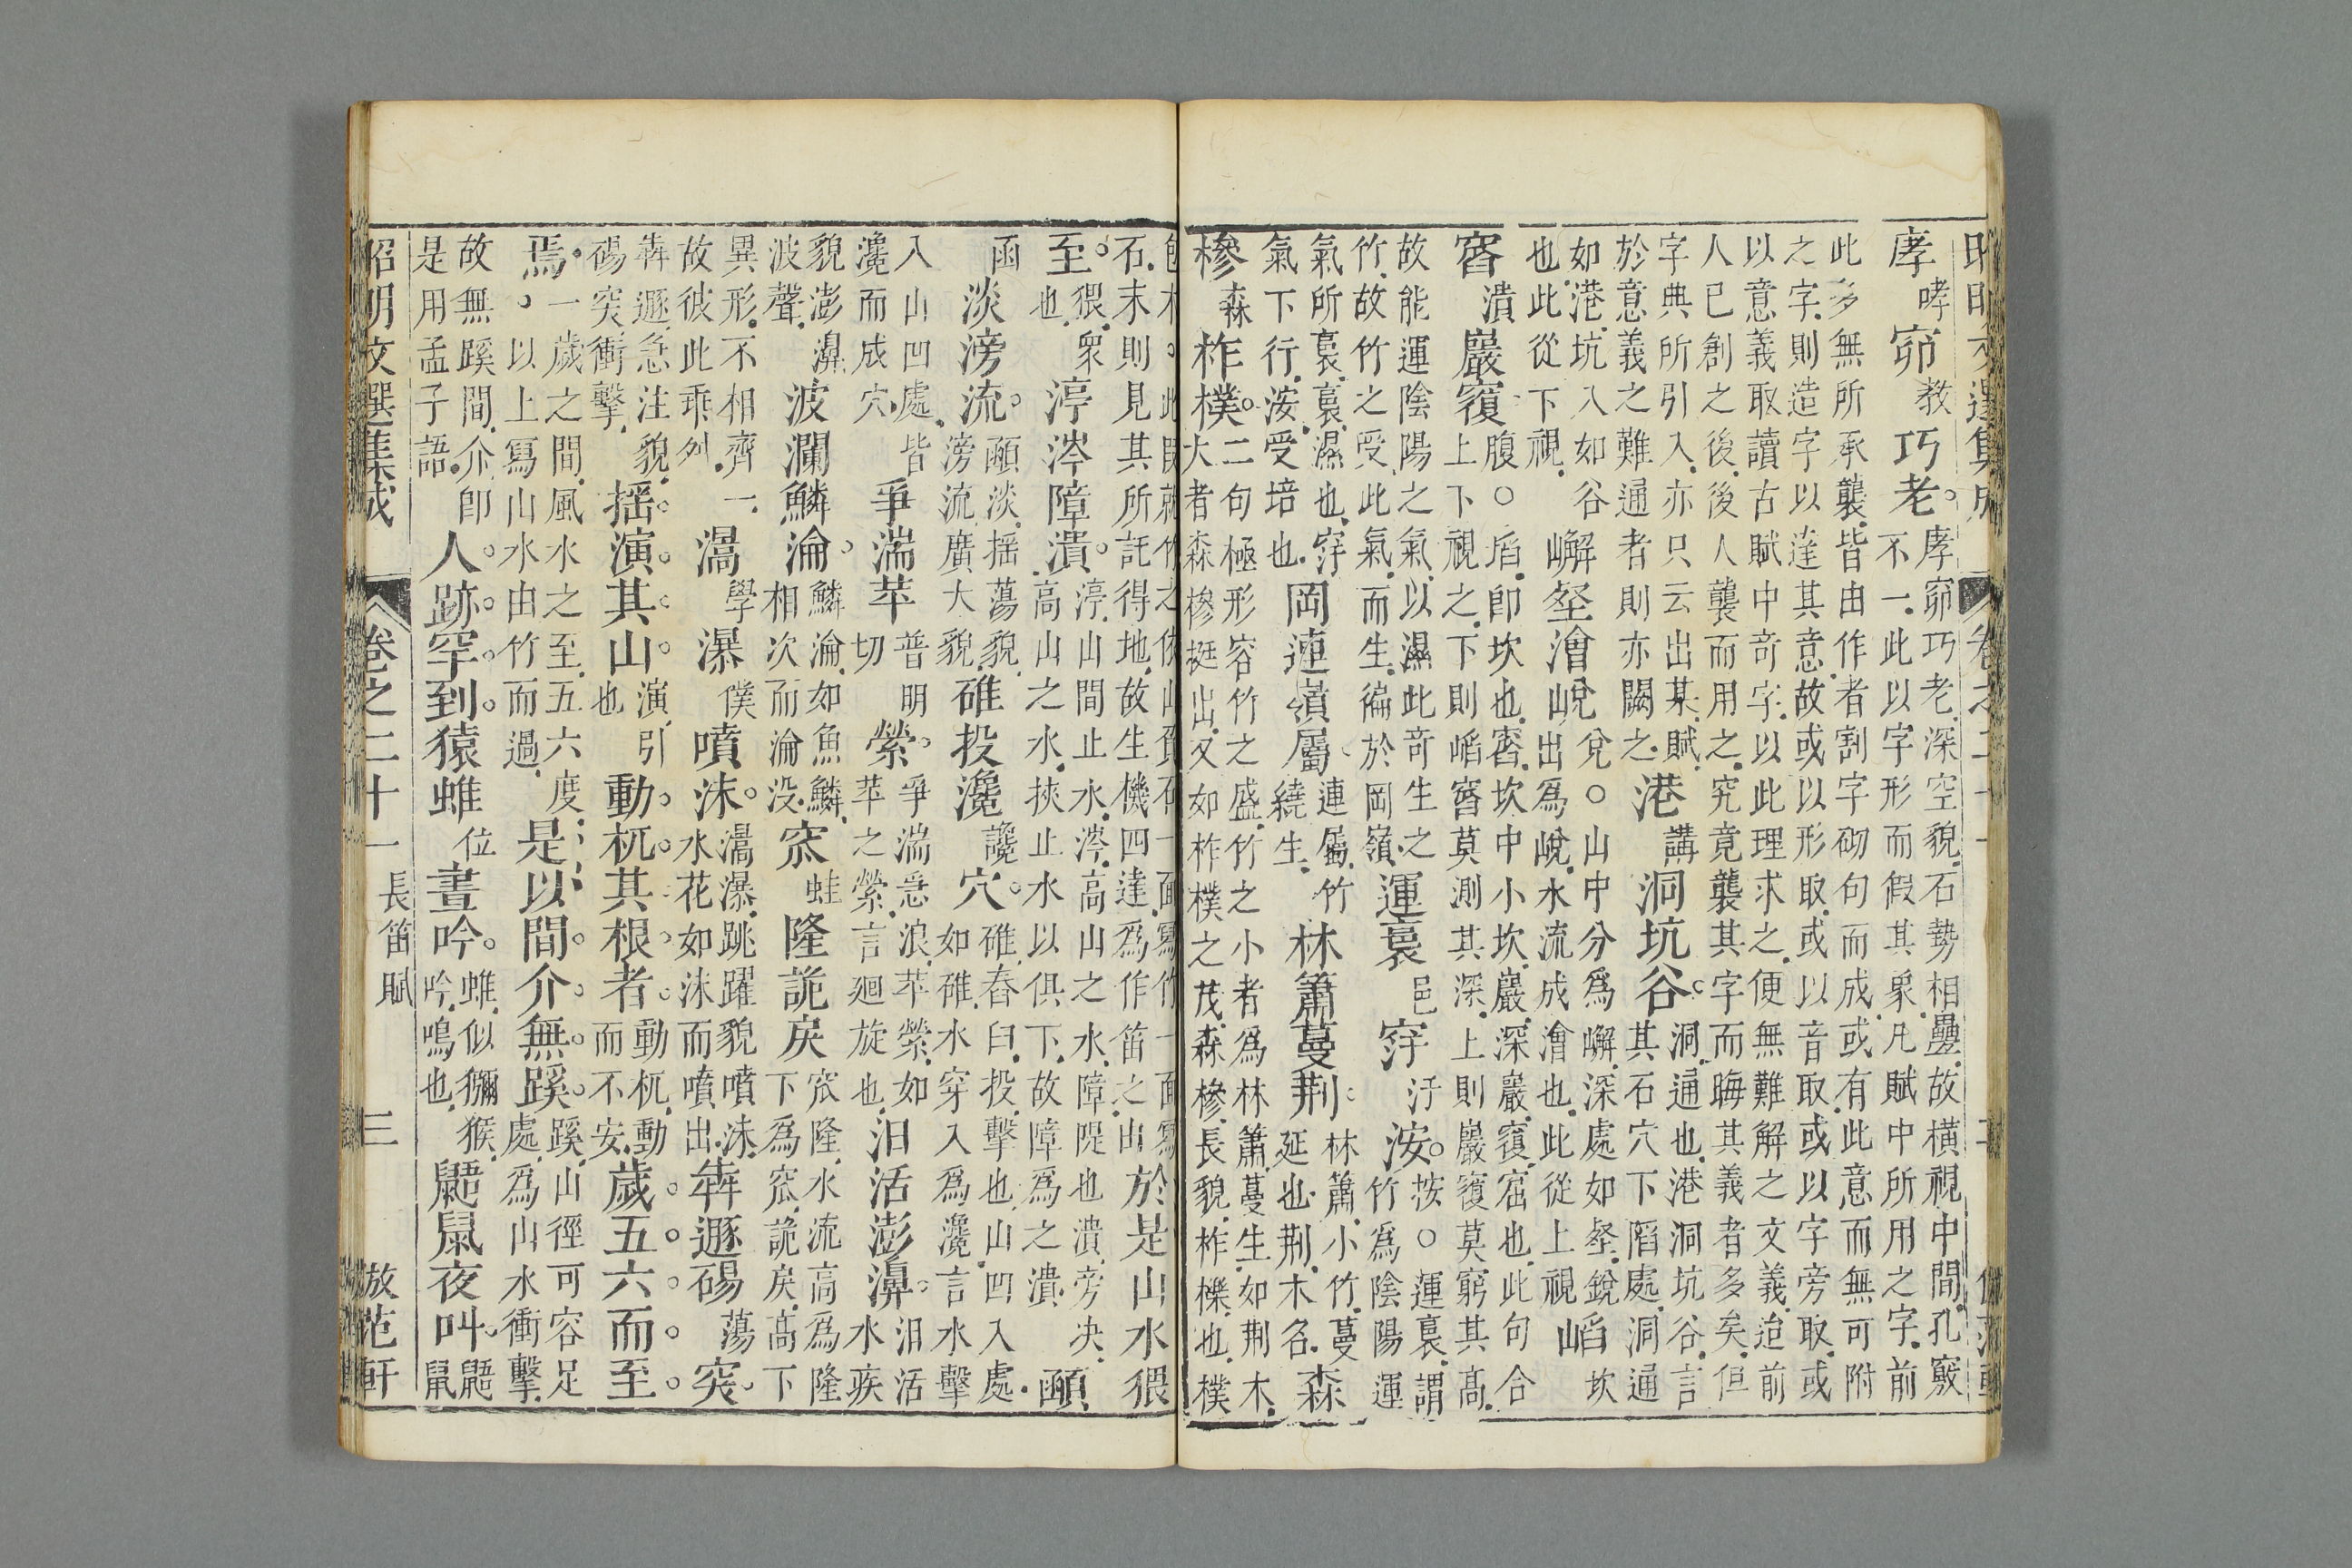 庨哮窌教巧老。庨窌巧老深空貌石勢相疊故橫視中間孔竅不一此以字形而假其象凡賦中所用之字前
此多無所承襲皆由作者割字砌句而成或有此意而無可附之字則造字以達其意故或以形取或以音取或以字旁取或
以意義取讀古賦中奇字以此理求之便無難解之文義迨前人已創之後後人襲而用之究竟襲其字而晦其義者多矣但
字典所引入亦只云出某賦於意義之難通者則亦闕之港講洞坑谷。洞通也港洞坑谷言其石穴下陷處洞通
如港坑入如谷也此從下視嶰壑澮㟋兌○山中分為嶰深處如壑銳出為㟋水流成澮也此從上視㟴坎
窞瀆巖覆腹○㟴即坎也窞坎中小坎巖深巖覆窟也此句合上下視之下則㟴窞莫測其深上則巖覆莫窮其高
故能運陰陽之氣以濕此奇生之竹故竹之受此氣而生徧於岡嶺運裛邑窏汙洝。按○運裛謂竹為陰陽運
氣所裛裛濕也窏氣下行洝受培也岡連嶺屬。連屬竹繞生林簫蔓荆。林簫小竹蔓延也荆木名森
槮森柞樸。二句極形容竹之盛竹之小者為林簫蔓生如荆木大者森槮挺出又如柞樸之茂森槮長貌柞櫟也樸
枹木。此段就竹之依山負石一面寫竹一面寫石末則見其所託得地故生機四達為作笛之由於是山水猥
至。猥眾也渟涔障潰。渟山間止水涔高山之水障隄也潰旁決高山之水挾止水以俱下故障為之潰顄
函淡滂流。顄淡揺蕩貌滂流廣大貌碓投瀺讒穴。碓舂臼投擊也山凹入處如碓水穿入為瀺言水擊
入山凹處皆瀺而成穴爭湍苹普明切縈。爭湍急浪苹縈如苹之縈言廻旋也汨活澎濞。汨活水疾
貌澎濞波聲波瀾鱗淪。鱗淪如魚鱗相次而淪没窊蛙隆詭戾窊隆水流高為隆下為窊詭戾高下
異形不相齊一故彼此乖舛瀥學瀑僕噴沫。瀥瀑跳躍貌噴沫水花如沫而噴出犇遯碭蕩突。
犇遯急注貌碭突衝擊揺演其山。演引也動杌其根者。動杌動而不安歲五六而至
焉。一歲之間風水之至五六度○以上寫山水由竹而過是以間介無蹊。蹊山徑可容足處為山水衝擊
故無蹊間介即是用孟子語人跡罕到。猿蜼位晝吟。蜼似獼猴吟鳴也鼯鼠夜叫。鼯鼠
昭明文選集成 卷之二十一 長笛賦 三 放范軒